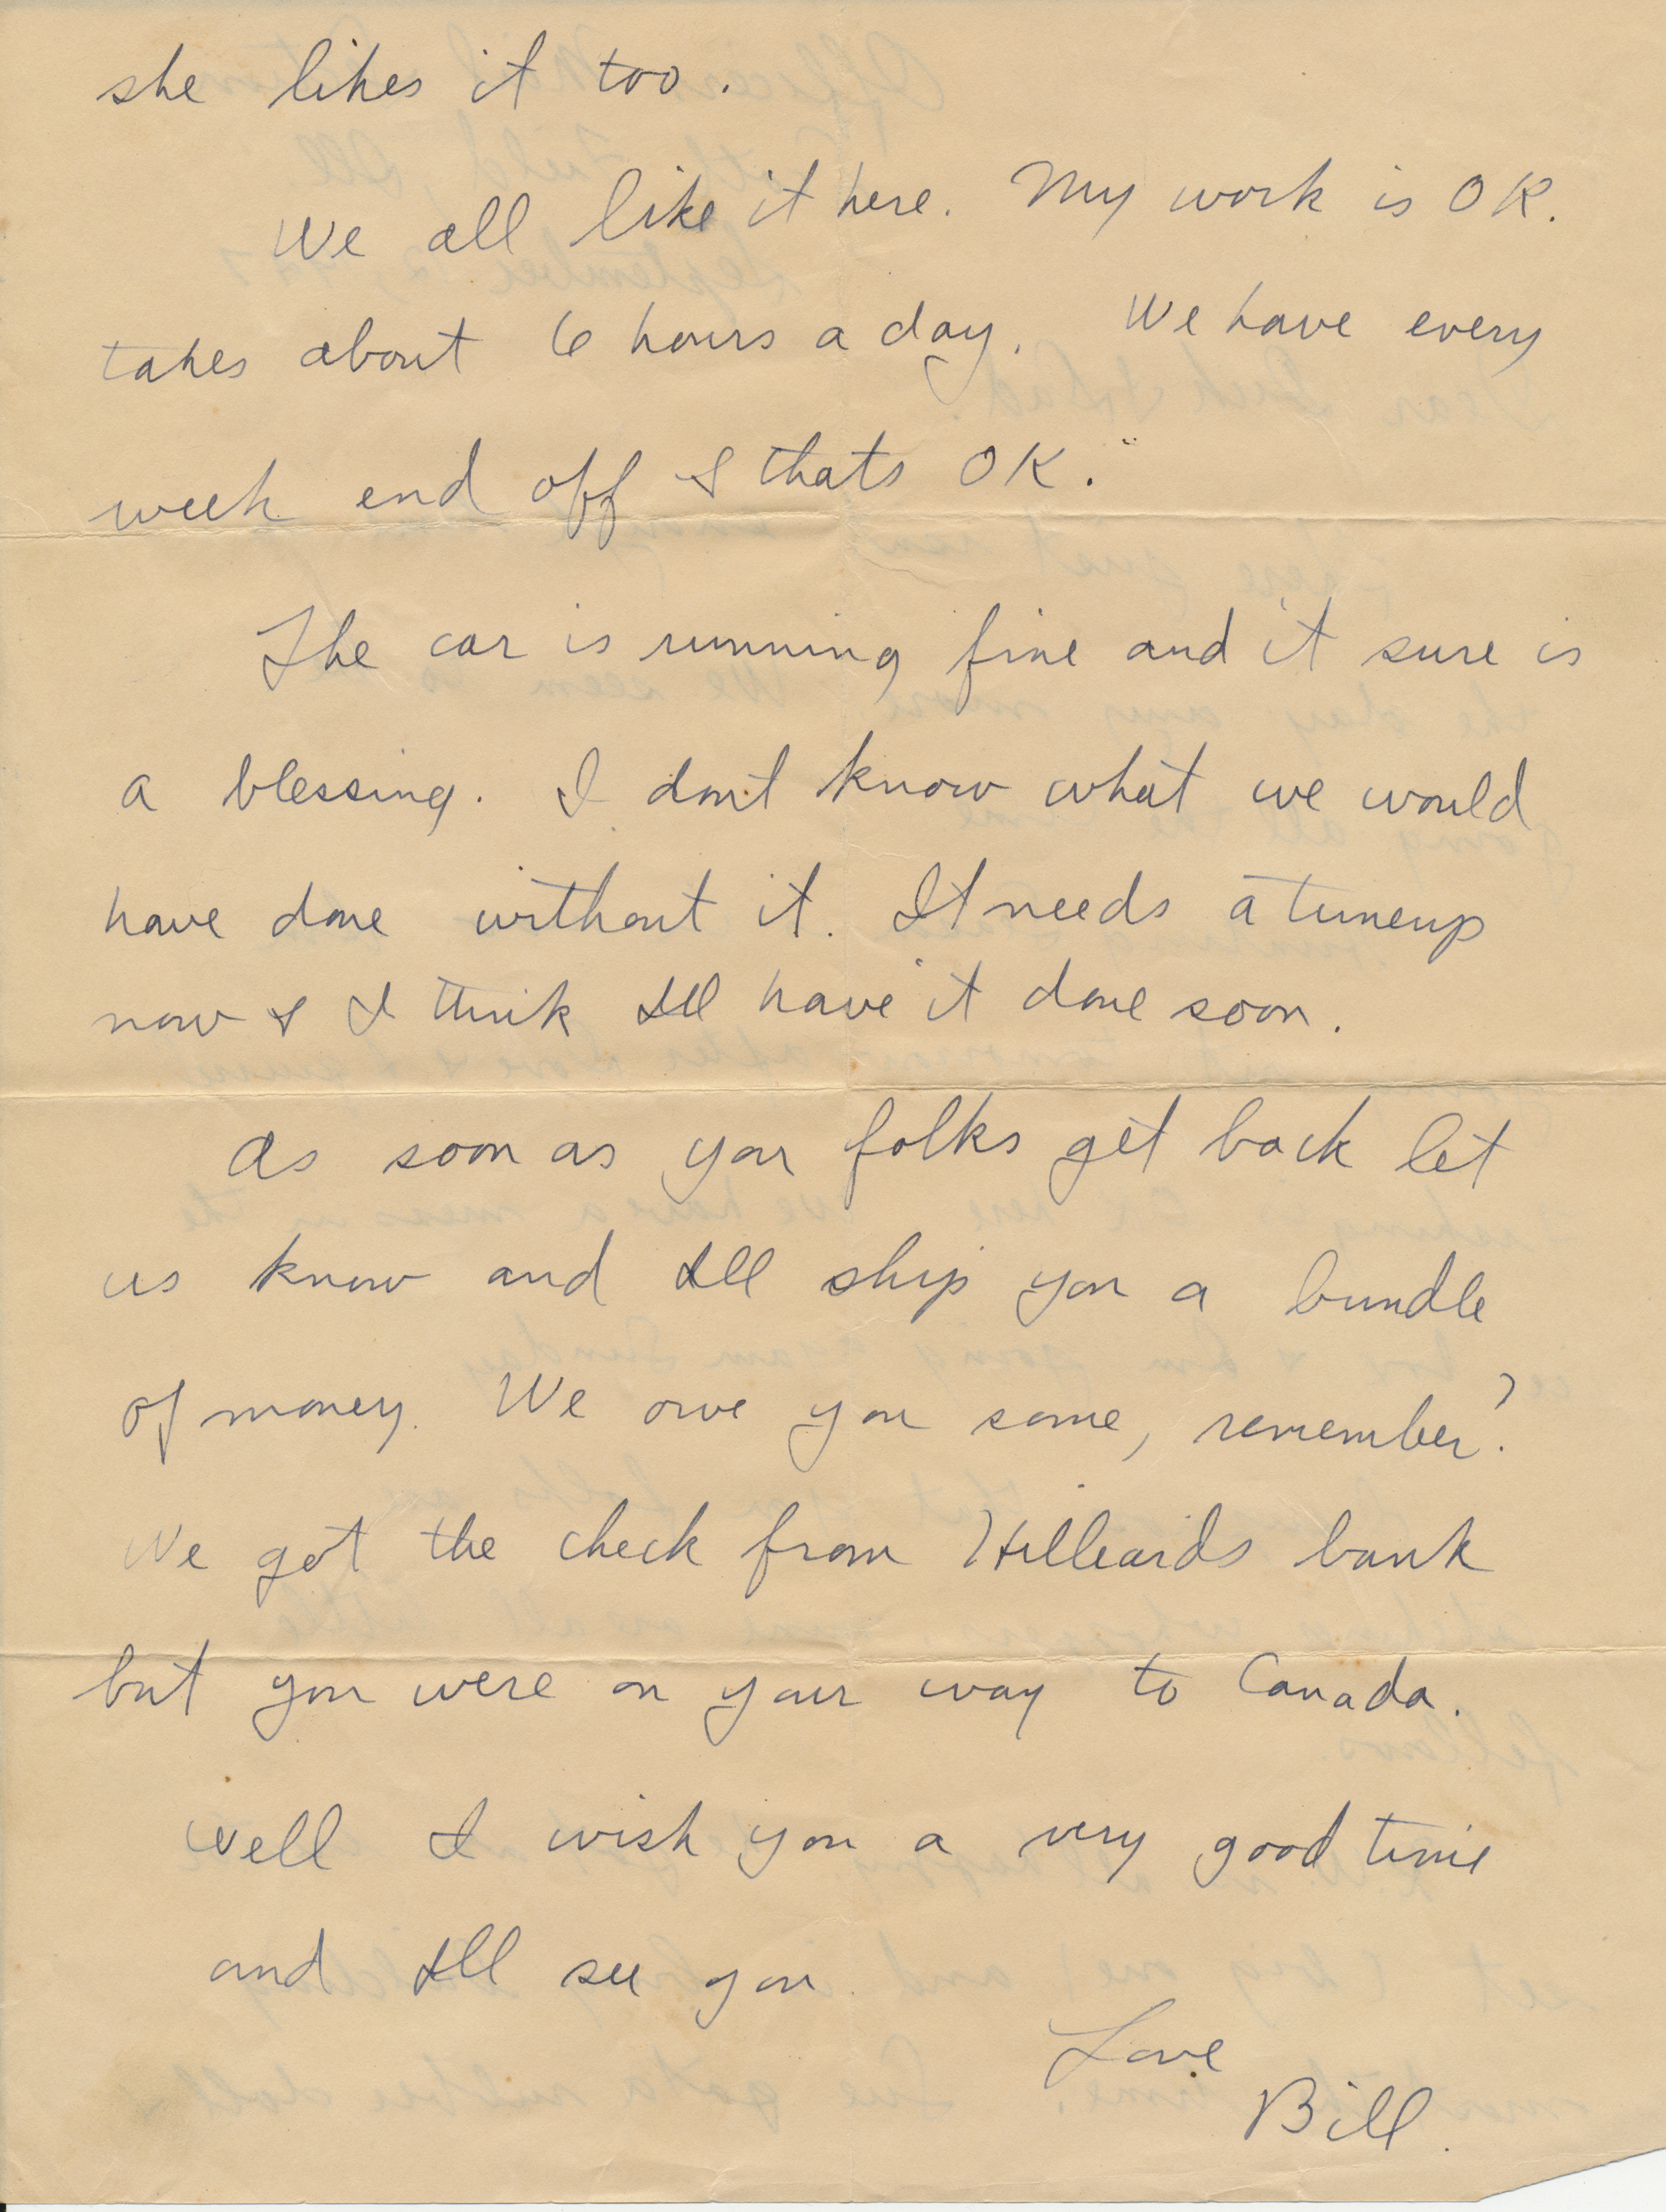 she likes it too.
We all like it here. My work is OK.
takes about 6 hours a day. We have every
week end off & thats OK.
The car is running fine and it sure is
a blessing. I dont know what we would
have done without it. It needs a tuneup
now & I think Ill have it done soon.
As soon as you folks get back let
us know and Ill ship you a bundle
of money. We owe you some, remember?
We got the check from Hilleards bank
but you were on your way to Canada.
Well I wish you a very good time
and Ill see you
Love
Bill.